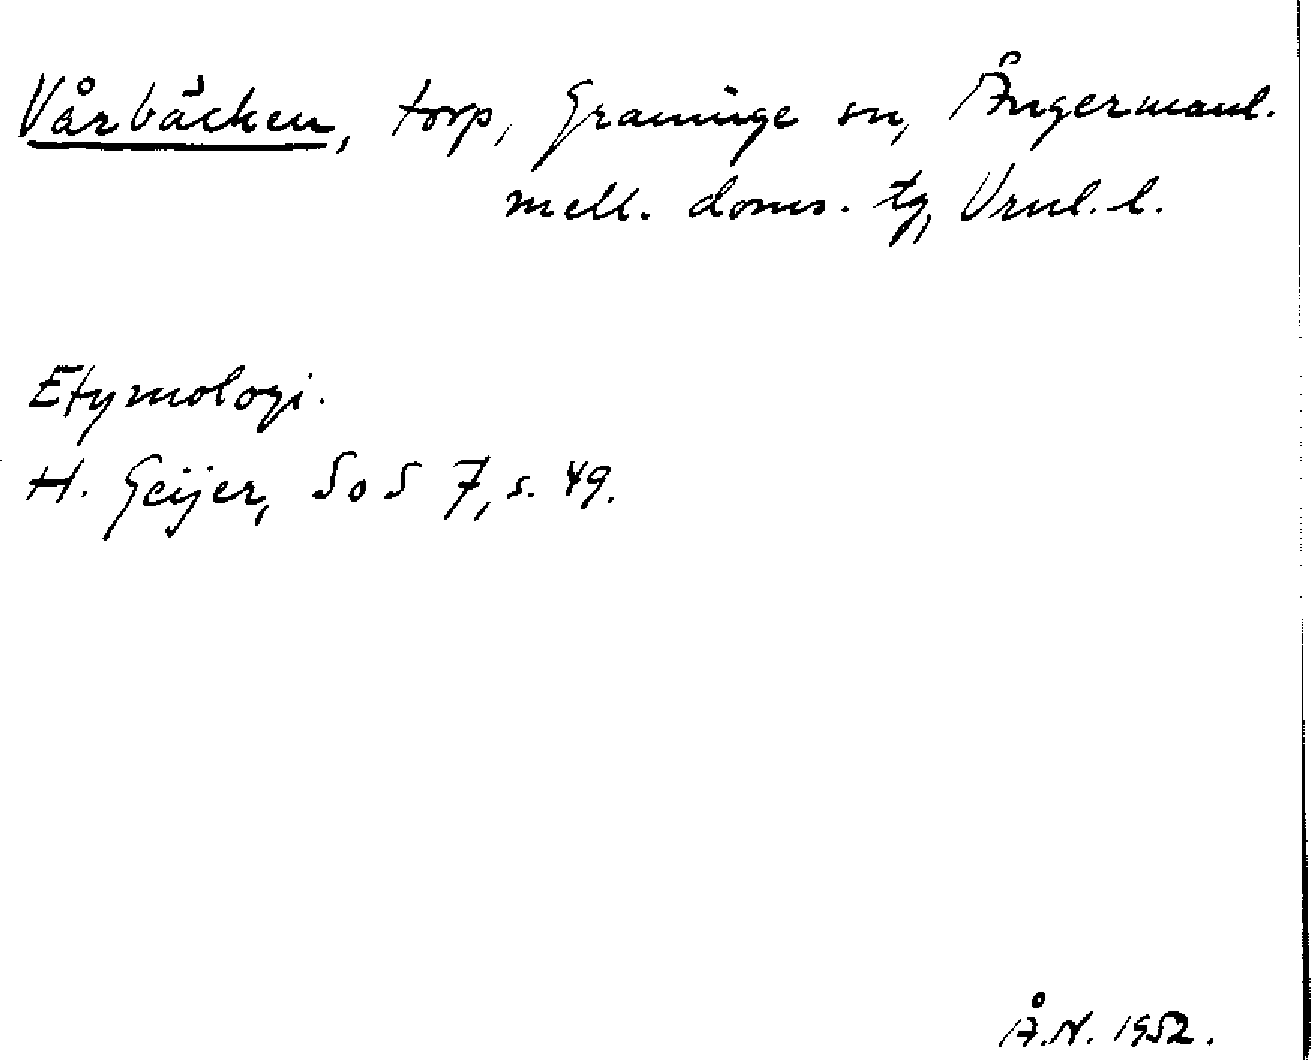 Vårbäcken, torp, Graninge sn, Ångermanl.
mell. doms. tg, Vrnl. l.
Etymologi.
H. Geijer, SoS 7, s. 49.
Å.N. 1952.